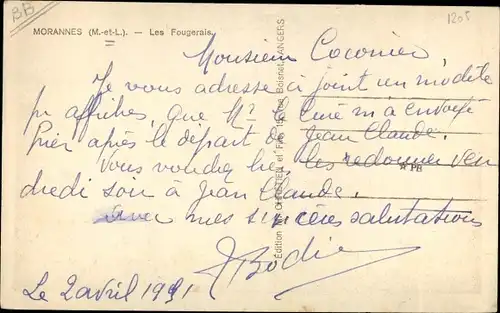 BB
1205
MORANNES (M.-et-L.). — Les Fougerais
Monsieur Coconier,
Je vous adresse ci joint un modèle
pr affiches, que Mr Curé m'a envoyé
hier après le départ de Jean Claude.
Vous voudrez les redonner ven
dredi soir à Jean Claude.
avec mes sincères salutations
Bodin
Le 2 avril 1991
Édition CHRÉTIEN et Fils, ANGERS